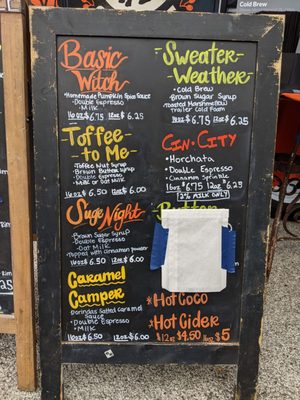 COLD BREW
Basic
Witch
Homemade Pumpkin Spice Sauce
-Double Espresso
-Milk
16oz $6.75 12oz $6.25
Toffee
-to Me-
-Toffee Nut Syrup
-Brown Butter Syrup
-Double Espresso
-Milk or Oat Milk
16oz $6.50 12oz $6.00
Suge Night
-Brown Sugar Syrup
-Double Espresso
-Oat Milk
Topped with Cinnamon Powder
16oz $6.50 12oz $6.00
Caramel
Camper
Dorindas Salted Caramel
Sauce
-Double Espresso
-Milk
16oz $6.50 12oz $6.00
-Sweater-
Weather
-Cold Brew
-Brown Sugar Syrup
-Toasted Marshmellow
Trailer Cold Foam
16oz $6.75 12oz $6.25
Cin. City
-Horchata
-Double Espresso
-Cinnamon Sprinkle
16oz $6.75 12oz $6.25
*2% Milk Only
*Hot Coco
*Hot Cider
12oz $4.50 16oz $5